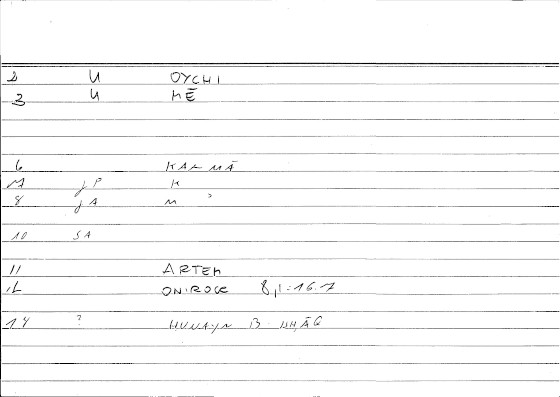 2 U OYCHI
3 U MĒ
6 KALMĀ
jP K
8 jA M
10 SA
11 ARTEM
12 ONIROCR 8,1=16.7
14 ? HUNAYN B